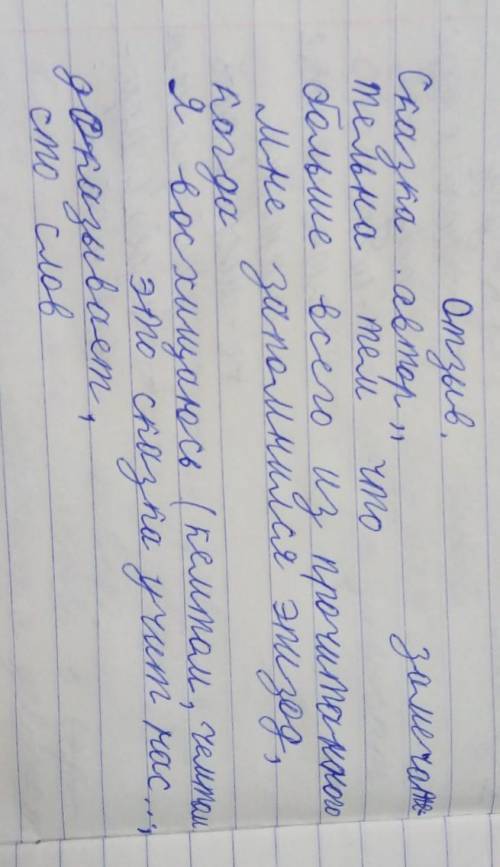 Отзыв.
Сказка автор,, замеча
тельна тем что
больше всего из прочитанного
мне запомнился эпизод,
когда
Я восхищаюсь (кемтом, чемтом
это сказка учит нас...,
доказывает,
сто слов